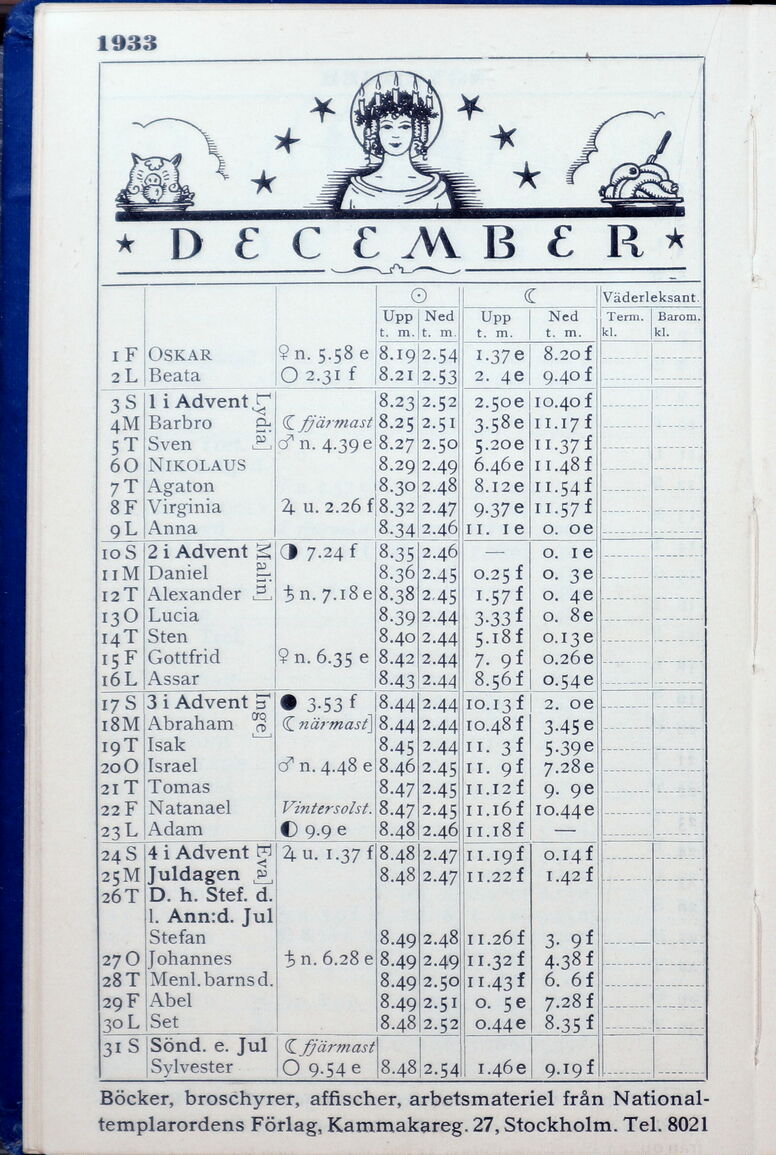 1933
★ DECEMBER ★
☉ ☾ Väderleksant.
Upp Ned Upp Ned Term. Barom.
t. m. t. m. t. m. t. m. kl. kl.
1 F OSKAR ♀ n. 5.58 e 8.19 2.54 1.37 e 8.20 f
2 L Beata ○ 2.31 f 8.21 2.53 2. 4 e 9.40 f
3 S 1 i Advent [Lydia] 8.23 2.52 2.50 e 10.40 f
4 M Barbro ☾ fjärmast 8.25 2.51 3.58 e 11.17 f
5 T Sven ♂ n. 4.39 e 8.27 2.50 5.20 e 11.37 f
6 O NIKOLAUS 8.29 2.49 6.46 e 11.48 f
7 T Agaton 8.30 2.48 8.12 e 11.54 f
8 F Virginia ♃ u. 2.26 f 8.32 2.47 9.37 e 11.57 f
9 L Anna 8.34 2.46 11. 1 e 0. 0 e
10 S 2 i Advent [Malin] ◑ 7.24 f 8.35 2.46 — 0. 1 e
11 M Daniel 8.36 2.45 0.25 f 0. 3 e
12 T Alexander ♄ n. 7.18 e 8.38 2.45 1.57 f 0. 4 e
13 O Lucia 8.39 2.44 3.33 f 0. 8 e
14 T Sten 8.40 2.44 5.18 f 0.13 e
15 F Gottfrid ♀ n. 6.35 e 8.42 2.44 7. 9 f 0.26 e
16 L Assar 8.43 2.44 8.56 f 0.54 e
17 S 3 i Advent [Inge] ● 3.53 f 8.44 2.44 10.13 f 2. 0 e
18 M Abraham ☾ närmast] 8.44 2.44 10.48 f 3.45 e
19 T Isak 8.45 2.44 11. 3 f 5.39 e
20 O Israel ♂ n. 4.48 e 8.46 2.45 11. 9 f 7.28 e
21 T Tomas 8.47 2.45 11.12 f 9. 9 e
22 F Natanael Vintersolst. 8.47 2.45 11.16 f 10.44 e
23 L Adam ◐ 9.9 e 8.48 2.46 11.18 f —
24 S 4 i Advent [Eva] ♃ u. 1.37 f 8.48 2.47 11.19 f 0.14 f
25 M Juldagen 8.48 2.47 11.22 f 1.42 f
26 T D. h. Stef. d.
l. Ann:d. Jul
Stefan 8.49 2.48 11.26 f 3. 9 f
27 O Johannes ♄ n. 6.28 e 8.49 2.49 11.32 f 4.38 f
28 T Menl. barns d. 8.49 2.50 11.43 f 6. 6 f
29 F Abel 8.49 2.51 0. 5 e 7.28 f
30 L Set 8.48 2.52 0.44 e 8.35 f
31 S Sönd. e. Jul ☾ fjärmast
Sylvester ○ 9.54 e 8.48 2.54 1.46 e 9.19 f
Böcker, broschyrer, affischer, arbetsmateriel från National-
templarordens Förlag, Kammakareg. 27, Stockholm. Tel. 8021